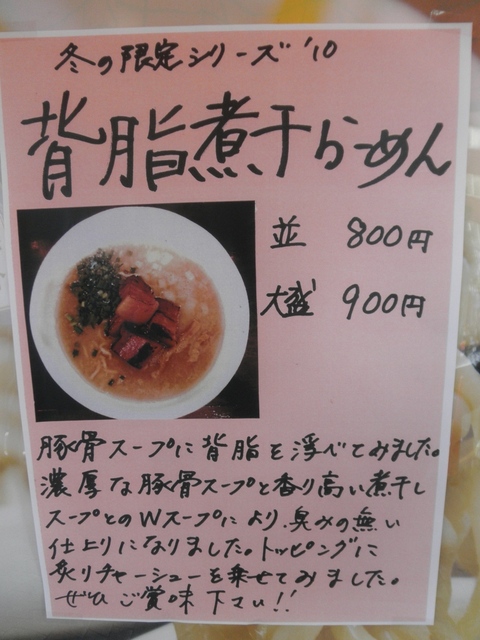 冬の限定シリーズ '10
背脂煮干らーめん
並 800円
大盛 900円
豚骨スープに背脂を浮べてみました。
濃厚な豚骨スープと香り高い煮干し
スープとのWスープにより臭みの無い
仕上りになりました。トッピングに
炙りチャーシューを乗せてみました。
ぜひご賞味下さい!!